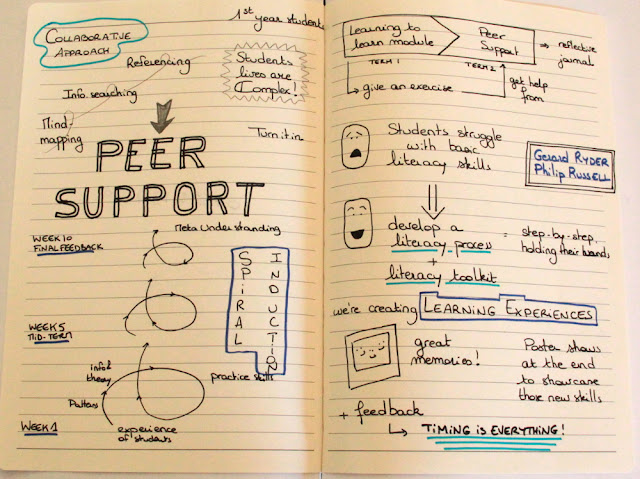 COLLABORATIVE
APPROACH
1st year students
Referencing
Info searching
Mind-
mapping
Students
lives are
Complex!
Turnitin
PEER
SUPPORT
Meta Understanding
WEEK 10
FINAL FEEDBACK
SPIRAL
INDUCTION
WEEK 5
MID-TERM
info &
theory
Pattern
practice skills
WEEK 1
experience
of students
Learning to
learn module
TERM 1
Peer
Support
TERM 2
⇒ reflective
journal
give an exercise
get help
from
Students struggle
with basic
literacy skills
Gerard RYDER
Philip RUSSELL
develop a
literacy process
= step-by-step...
holding their hands
+
literacy toolkit
we're creating LEARNING EXPERIENCES
great
memories!
Poster shows
at the end
to showcase
those new skills
+ feedback
TIMING IS EVERYTHING!